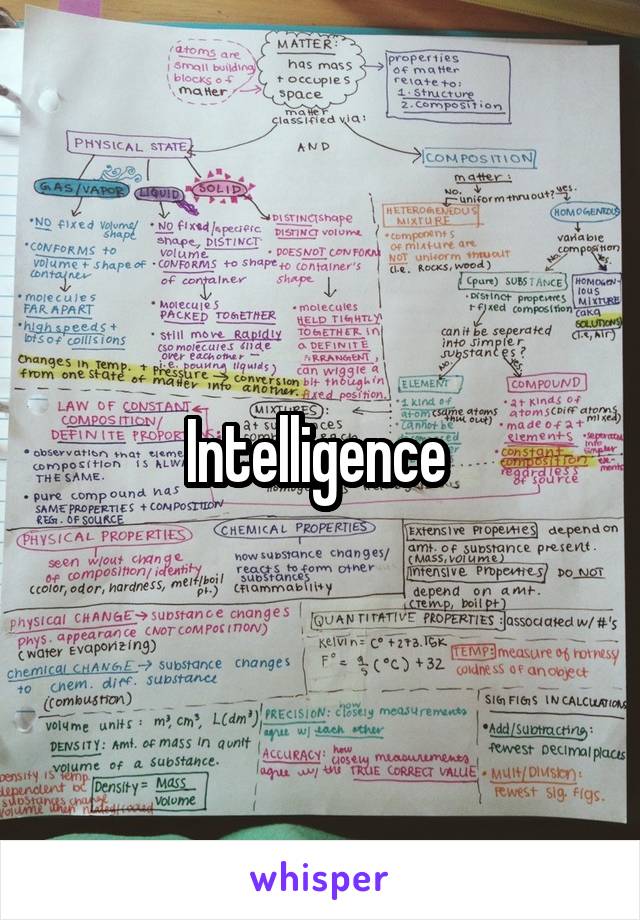 MATTER:
has mass
+ occupies
space
atoms are
small building
blocks of
matter
properties
of matter
relate to:
1. Structure
2. composition
matter
classified via:
PHYSICAL STATE
AND
COMPOSITION
GAS/VAPOR
LIQUID
SOLID
• NO fixed volume/
shape
• CONFORMS to
volume + shape of
container
• molecules
FAR APART
• high speeds +
lots of collisions
• NO fixed/specific
shape, DISTINCT
volume
• CONFORMS to shape
of container
• Molecules
PACKED TOGETHER
• still move Rapidly
(so molecules slide
over eachother —
i.e. pouring liquids)
• DISTINCT shape
DISTINCT volume
• DOES NOT CONFORM
to container's
shape
• molecules
HELD TIGHTLY
TOGETHER in
a DEFINITE
ARRANGENT,
can wiggle a
bit though in
fixed position.
Changes in Temp. + Pressure → conversion
from one state of matter into another.
matter:
NO.
uniform thruout?
yes.
HETEROGENEOUS
MIXTURE
• components
of mixture are
NOT uniform thruout
(i.e. Rocks, wood)
HOMOGENEOUS
variable
composition
NO
Yes
(pure) SUBSTANCE
• Distinct properties
+ fixed composition
HOMOGEN-
IOUS
MIXTURE
(aka
SOLUTIONS)
(i.e, Air)
can it be seperated
into simpler
substances?
ELEMENT
• 1 kind of
atom (same atoms
thru out)
• cannot be
COMPOUND
• 2+ kinds of
atoms (Diff atoms
mixed)
• made of 2+
elements
• constant
composition
regardless
of source
• seperates
into
simpler
elements
LAW OF CONSTANT
COMPOSITION/
DEFINITE PROPORTIONS
• observation that
composition IS
THE SAME.
• pure compound has
SAME PROPERTIES + COMPOSITION
REG. OF SOURCE
MIXTURES:
2+ substances
Intelligence
PHYSICAL PROPERTIES
seen w/out change
of composition/identity
(color, odor, hardness, melt/boil
pt.)
CHEMICAL PROPERTIES
how substance changes/
reacts to form other
substances
(flammability
Extensive Properties depend on
amt. of substance present.
(MASS, VOLUME)
Intensive Properties DO NOT
depend on amt.
(Temp, boil pt)
physical CHANGE → substance changes
phys. appearance (NOT COMPOSITION)
(water evaporizing)
chemical CHANGE → substance changes
to chem. diff. substance
(combustion)
QUANTITATIVE PROPERTIES: associated w/ #'s
Kelvin = C° + 273.15K
F° = 9/5 (°C) + 32
TEMP: measure of hotness/
coldness of an object
volume units: m³, cm³, L(dm³)
DENSITY: Amt. of mass in a unit
volume of a substance.
Density is temp.
dependent bc
substances change
volume when
Density = Mass
Volume
PRECISION: how
closely measurements
agree w/ each other
ACCURACY: how
closely measurements
agree w/ the TRUE CORRECT VALUE
SIG FIGS IN CALCULATIONS
• Add/subtracting:
fewest decimal places
• Mult/Division:
fewest sig. figs.
whisper